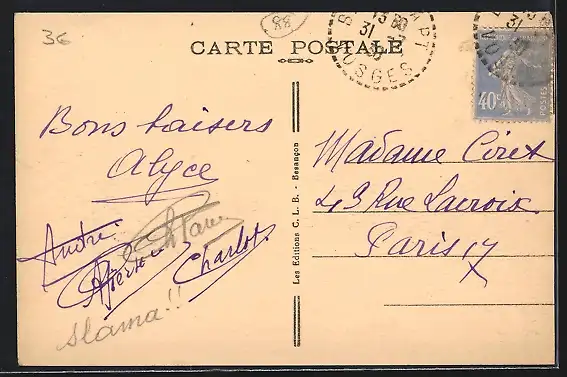 3€
88
CARTE POSTALE
15
31
VOSGES
40c
POSTES
Bons baisers
Alyce
André
Charlot
Slama!!
Les Editions C. L. B. - Besançon
Madame Ciret
43 Rue Lacroix
Paris 17